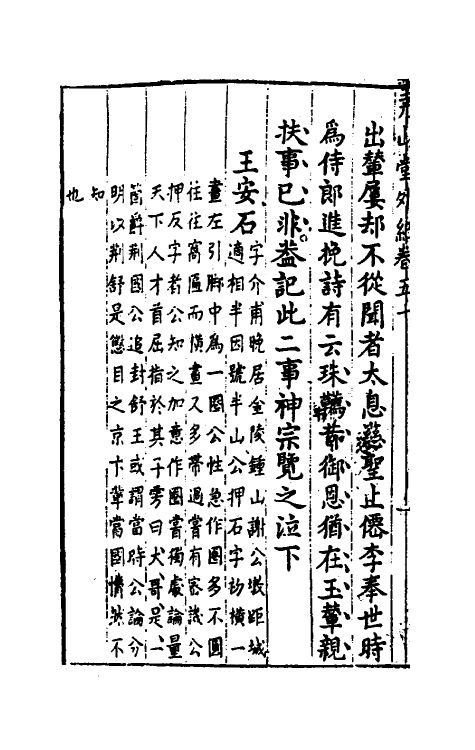 堯山堂外紀卷五十
出輦屢却不從聞者太息慈聖上僊李奉世時
爲侍郎進挽詩有云珠韉昔御恩猶在玉輦親
扶事已非葢記此二事神宗覽之泣下
王安石
字介甫晚居金陵鍾山謝公墩距城
適相半因號半山公押石字初橫一
畫左引脚中爲一圈公性急作圈多不圓
往往窩匾而橫畫又多帶過嘗有密議公
押反字者公知之加意作圈嘗獨處論量
天下人才首屈指於其子雱曰大哥是一
箇爵荆國公追封舒王或謂當時公論分
明以荆舒是懲目之京卞輩當國懵然不
知
也